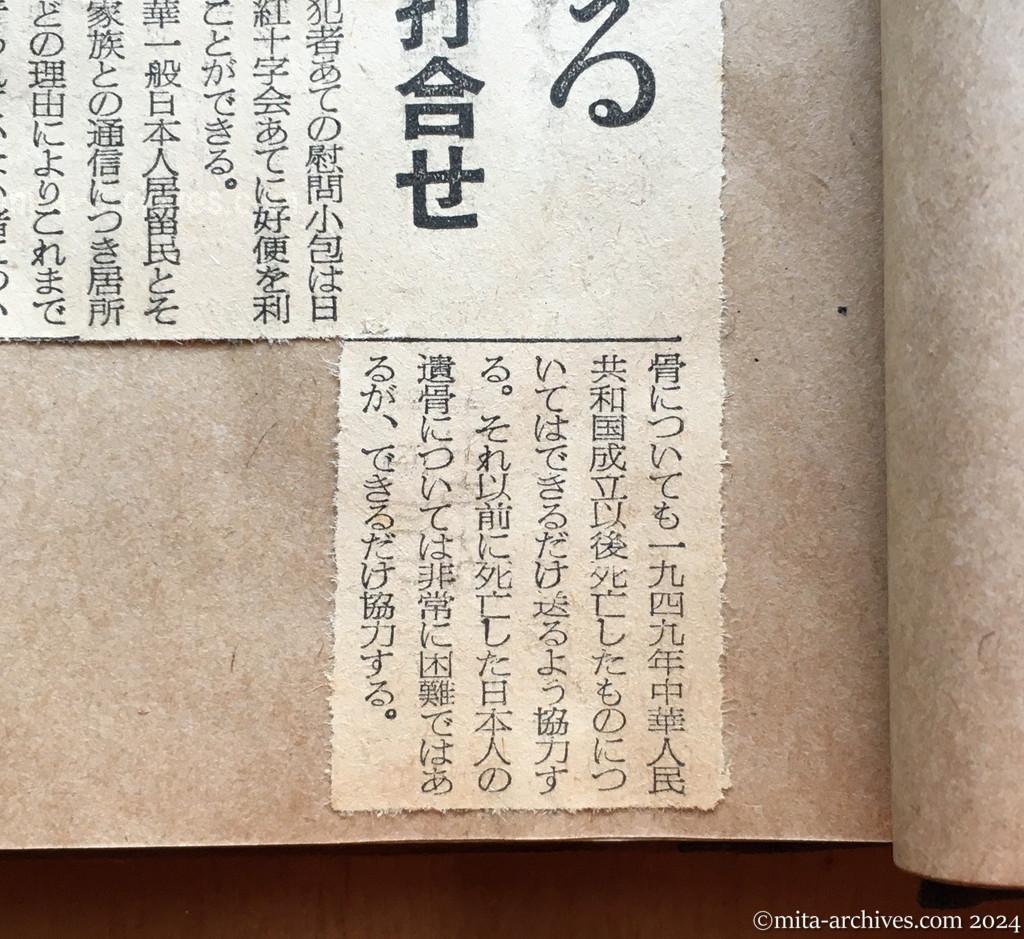 る
打合せ
犯者あての慰問小包は日
紅十字会あてに好便を利
ことができる。
華一般日本人居留民とそ
家族との通信につき居所
どの理由によりこれまで
骨についても一九四九年中華人民
共和国成立以後死亡したものにつ
いてはできるだけ送るよう協力す
る。それ以前に死亡した日本人の
遺骨については非常に困難ではあ
るが、できるだけ協力する。
©mita-archives.com 2024